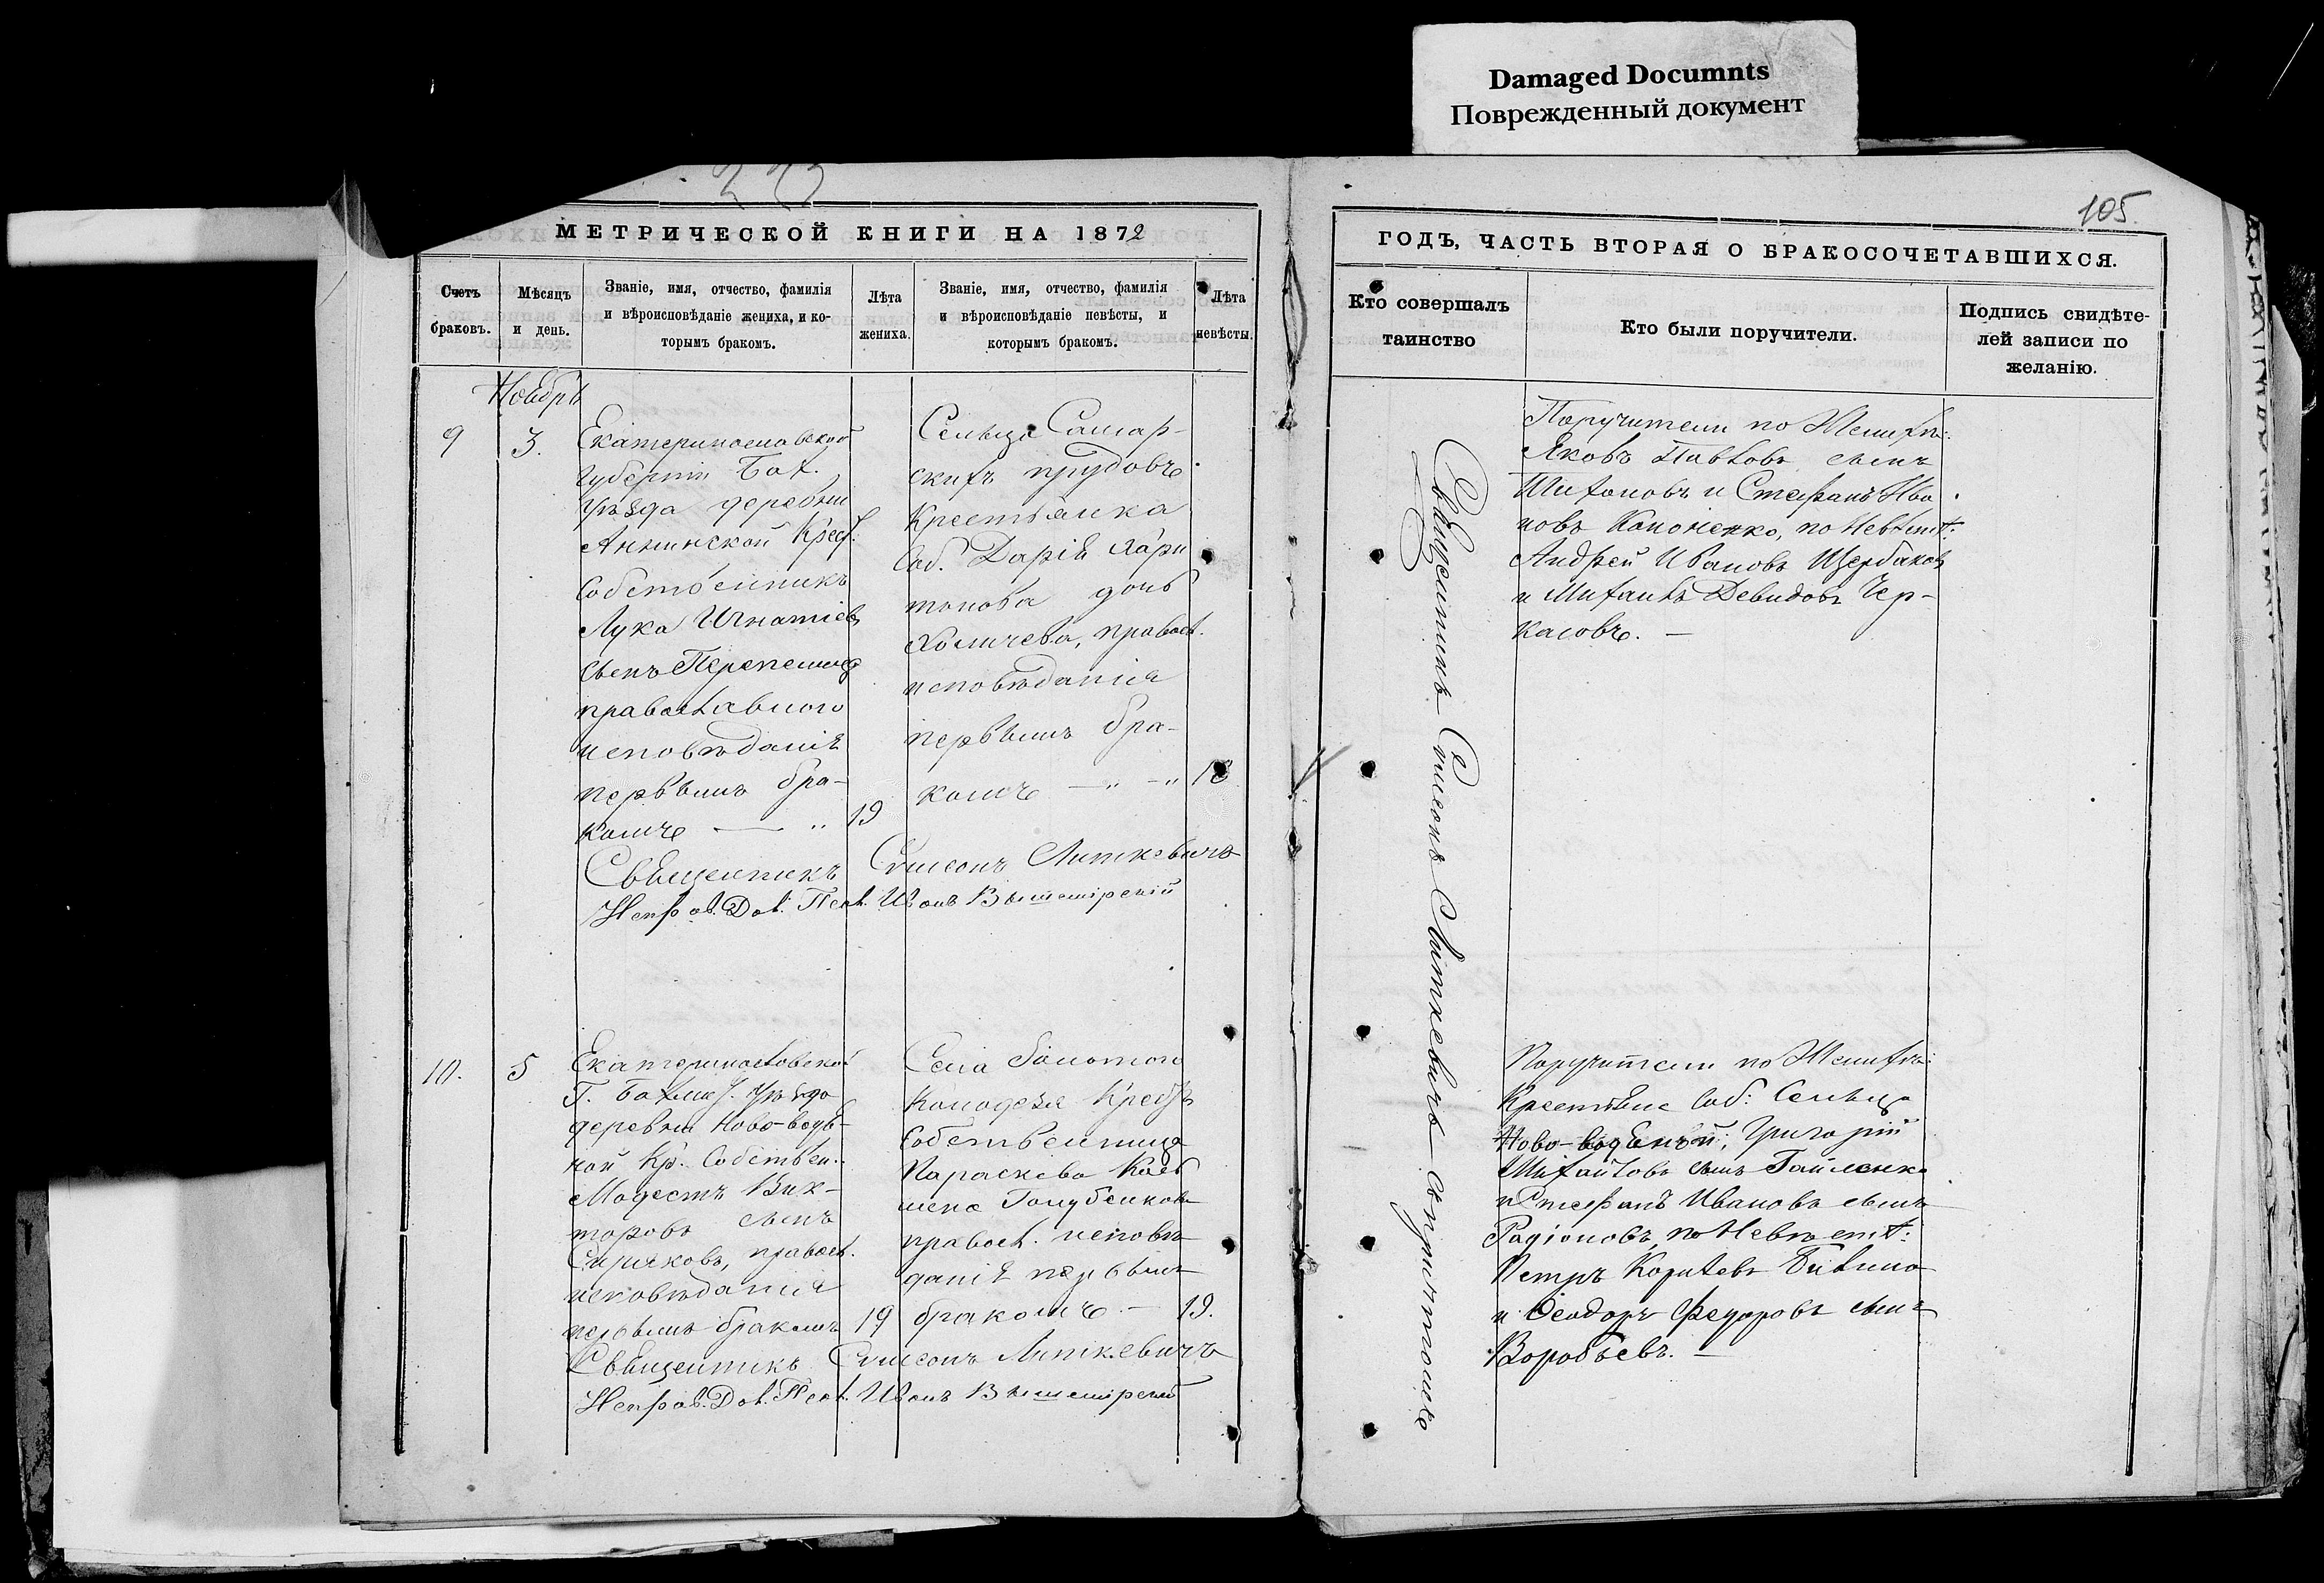 Damaged Documnts
Поврежденный документ
МЕТРИЧЕСКОЙ КНИГИ НА 1872
Счетъ браковъ.
Мѣсяцъ и день.
Званіе, имя, отчество, фамилія
и вѣроисповѣданіе жениха, и ко-
торымъ бракомъ.
Лѣта жениха.
Званіе, имя, отчество, фамилія
и вѣроисповѣданіе невѣсты, и
которымъ бракомъ.
Лѣта невѣсты.
Ноябрь
9
3.
Екатеринославской
Губерніи Бах.
Уѣзда деревни
Аннинской Крест.
Собственникъ
Лука Игнатіевъ
сынъ
православнаго
исповѣданія
первымъ бра-
комъ — „ 19
Сельца Самар-
скихъ прудовъ
Крестьянка
Соб. Дарія Хари
тонова дочь
правосл.
исповѣданія
первымъ бра-
комъ — „ — „ 18
Священникъ Симеонъ Литкевичъ
Иванъ
10.
5
Екатеринославской
Г. Бахмут. Уѣзда
деревни Ново-водя-
ной Кр. Собствен.
Модестъ Вик-
торовъ сынъ
правосл.
исповѣданія
первымъ бракомъ 19
Села
Колодезя Крест.
Собственница
Параскева
Голубенкова
правосл. исповѣ
данія первымъ
бракомъ — 19.
Священникъ Симеонъ Литкевичъ
Иванъ
105.
ГОДЪ, ЧАСТЬ ВТОРАЯ О БРАКОСОЧЕТАВШИХСЯ.
Кто совершалъ
таинство
Кто были поручители.
Подпись свидѣте-
лей записи по
желанію.
Священникъ Симеонъ Литкевичъ съ причтомъ
Поручители по Женихѣ:
Яковъ Павловъ сынъ
и Стефанъ Ива
новъ Кононенко, по Невѣст.:
Андрей Ивановъ Щербаковъ
и Михаилъ Девидовъ Чер-
касовъ. —
Поручители по Женихѣ:
Крестьяне Соб: Сельца
Ново-водяной: Григорій
Михайловъ сынъ
и Стефанъ Ивановъ сынъ
Радіоновъ, по Невѣст.:
Петръ
и Ѳеодоръ Федоровъ сынъ
Воробьевъ. —